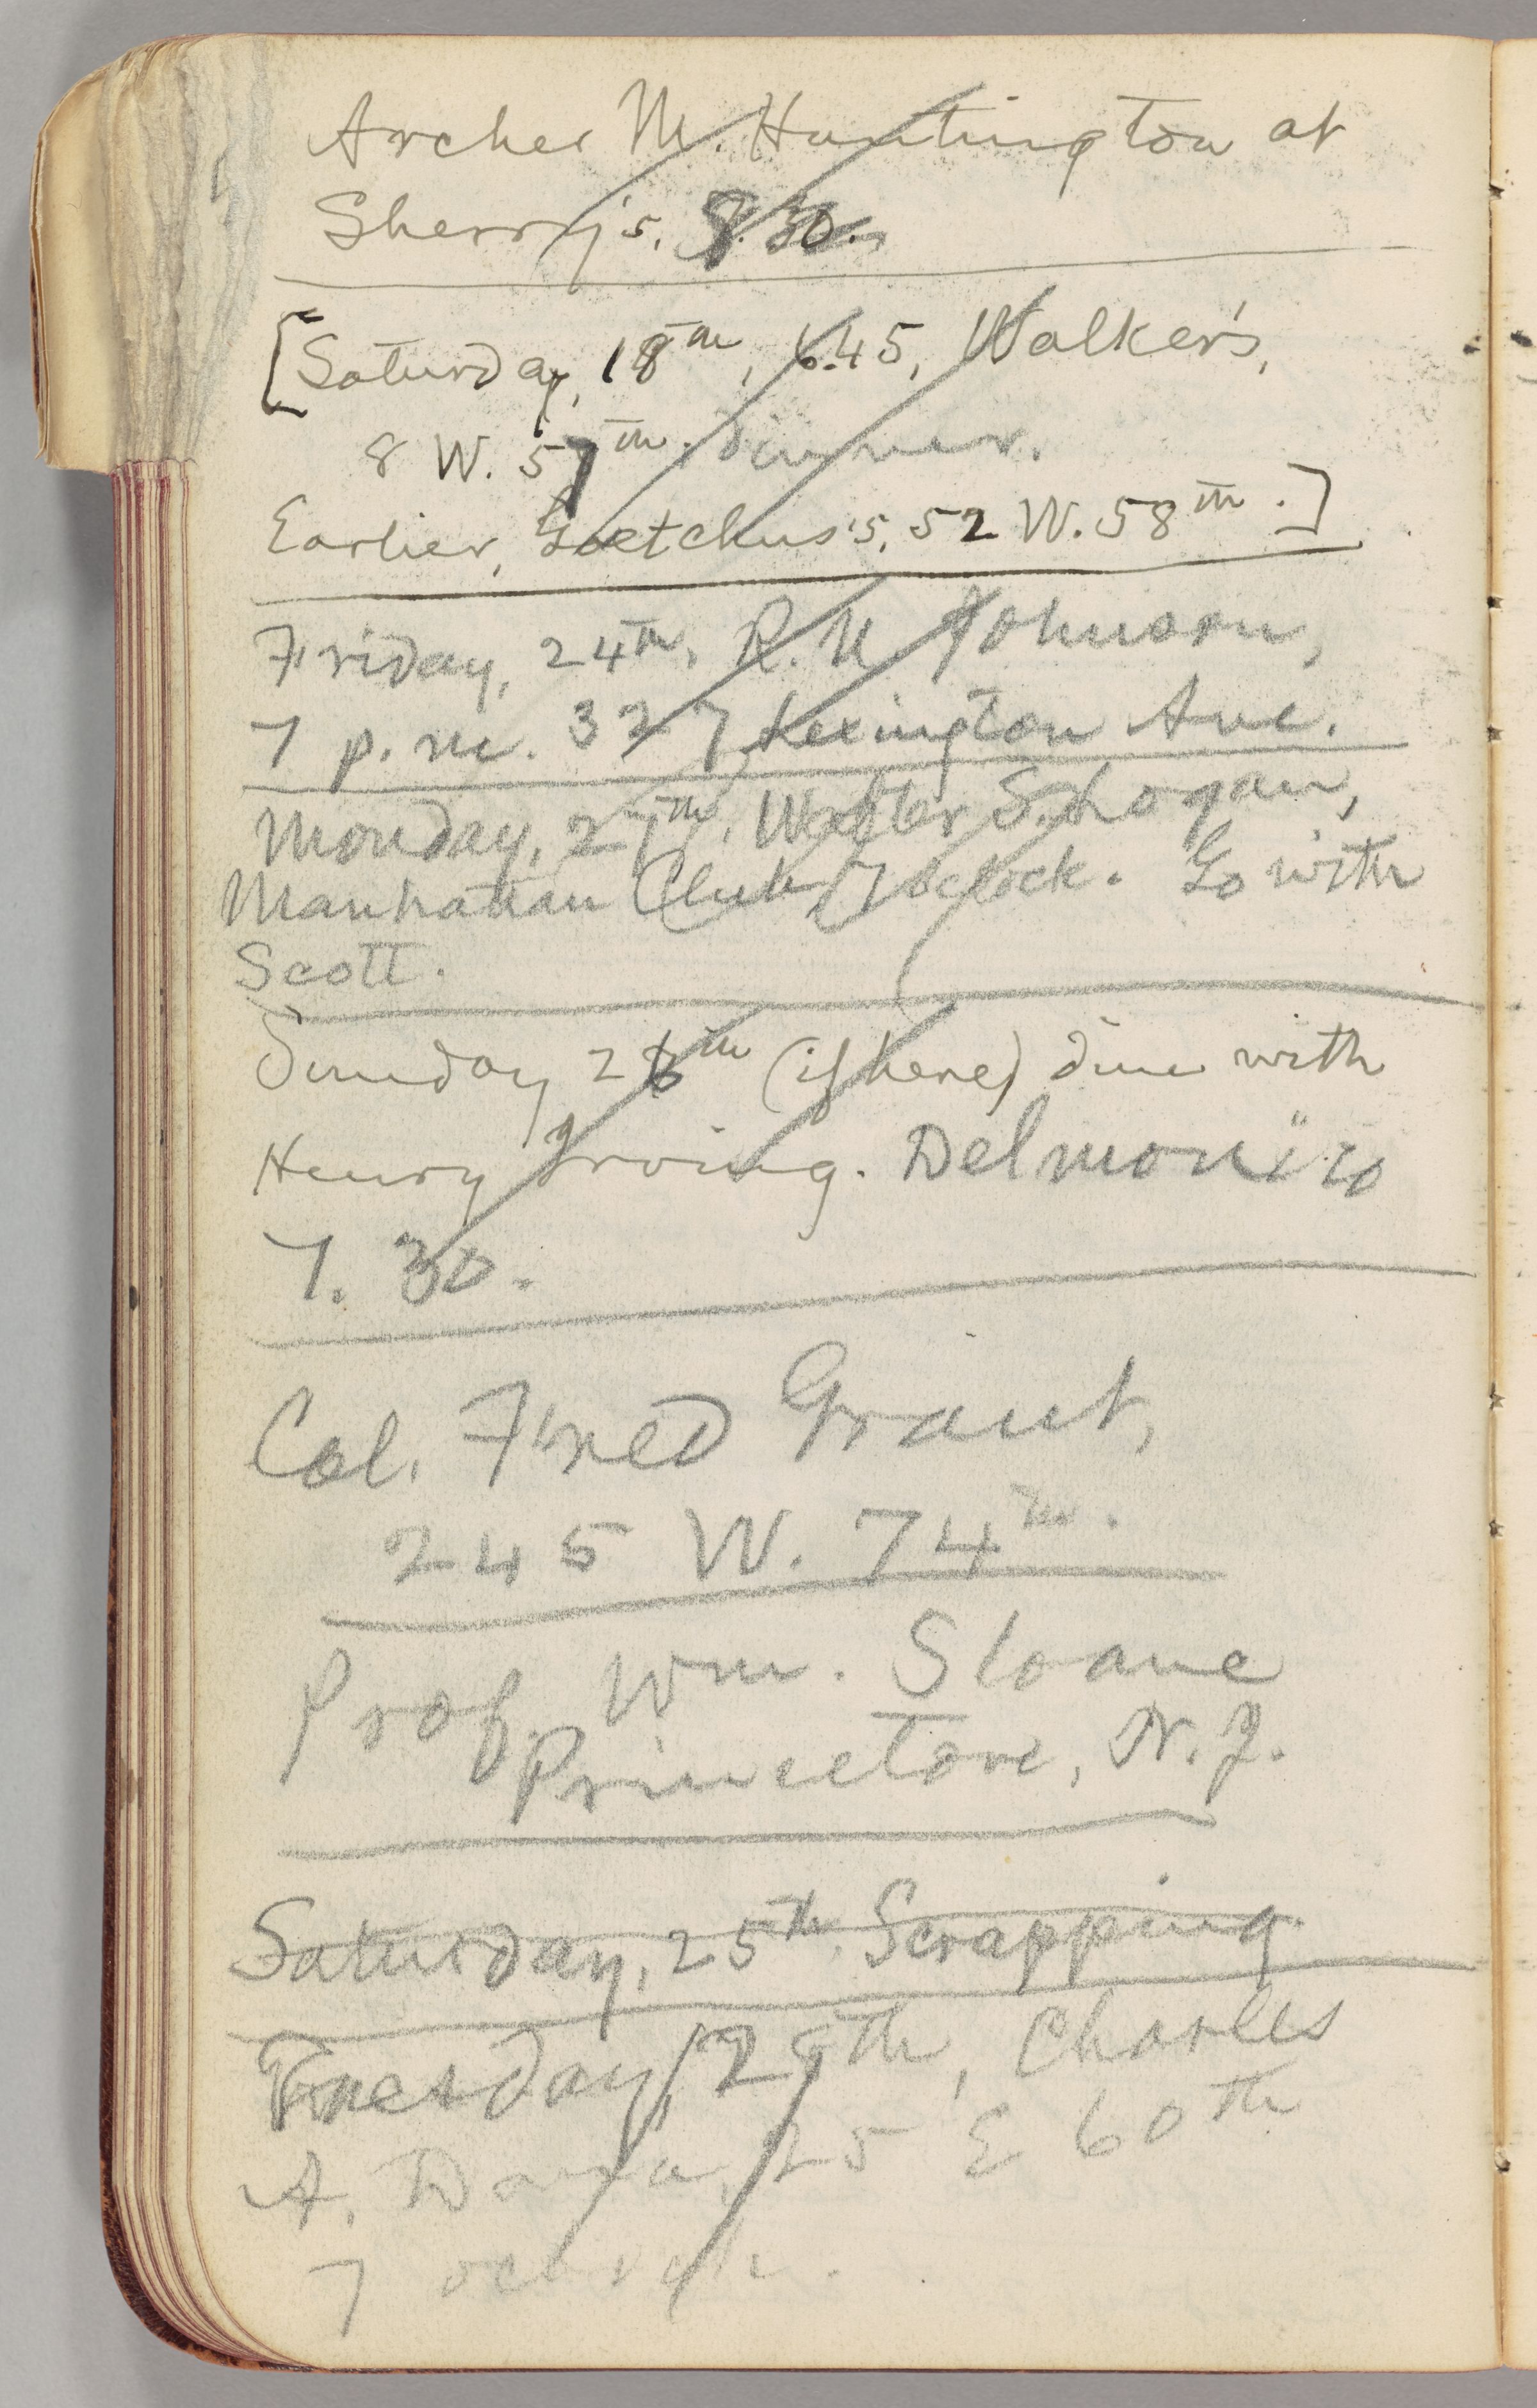 Archer M. Huntington at
Sherry's. 8.30.
[Saturday, 18th, 6.45, Walker's,
8 W. 57th. dinner.
Earlier, Goetchus's, 52 W. 58th.]
Friday, 24th, R. U. Johnson,
7 p.m. 327 Lexington Ave.
Monday, 27th, Walter S. Logan,
Manhattan Club, 7 oclock. Go with
Scott.
Sunday 26th (if here) dine with
Henry Irving. Delmonico
7.30.
Col. Fred Grant,
245 W. 74th.
Prof. Wm. Sloane
Princeton, N.J.
Saturday, 25th, Scrapping
Tuesday, 28th, Charles
A. Dana, 25 E 60th
7 oclock.